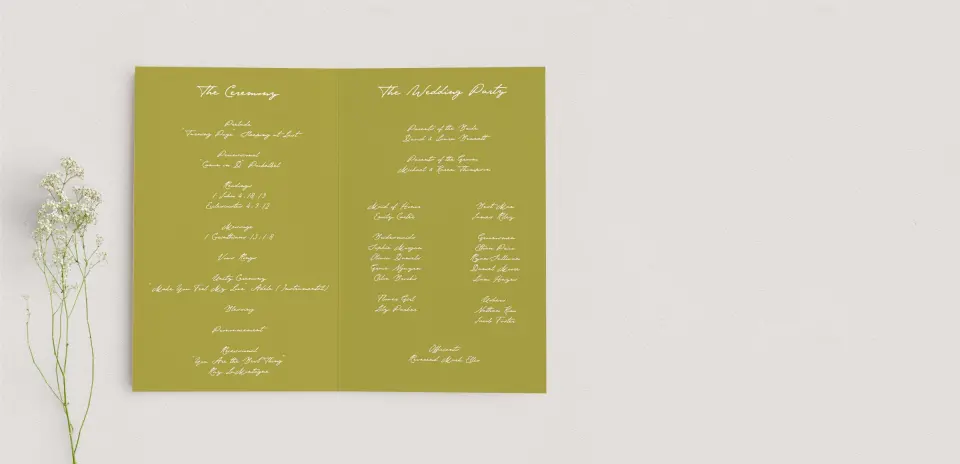 The Ceremony
Prelude
"Turning Page" Sleeping at Last
Processional
"Canon in D" Pachelbel
Readings
1 John 4:18-19
Ecclesiastes 4:9-12
Message
1 Corinthians 13:1-8
Vows Rings
Unity Ceremony
"Make You Feel My Love" Adele (Instrumental)
Blessing
Pronouncement
Recessional
"You Are the Best Thing"
Ray LaMontagne
The Wedding Party
Parents of the Bride
David & Laura
Parents of the Groom
Michael & Karen Thompson
Maid of Honor
Emily Carter
Bridesmaids
Sophie Morgan
Olivia Daniels
Grace Nguyen
Chloe
Flower Girl
Lily Parker
Best Man
James Riley
Groomsmen
Ethan Price
Ryan Sullivan
Daniel Moore
Liam Harper
Ushers
Nathan
Jacob Foster
Officiant
Reverend Mark Ellis